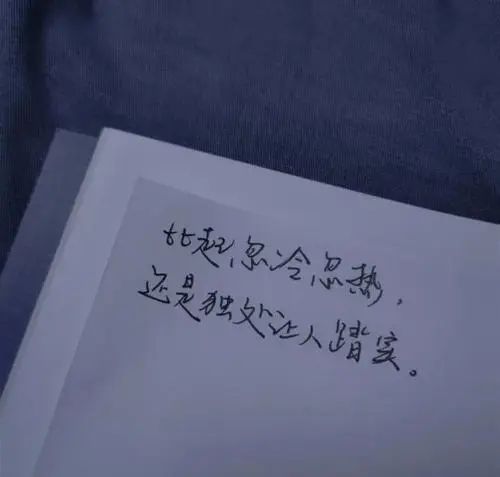 比起忽冷忽热，
还是独处让人踏实。